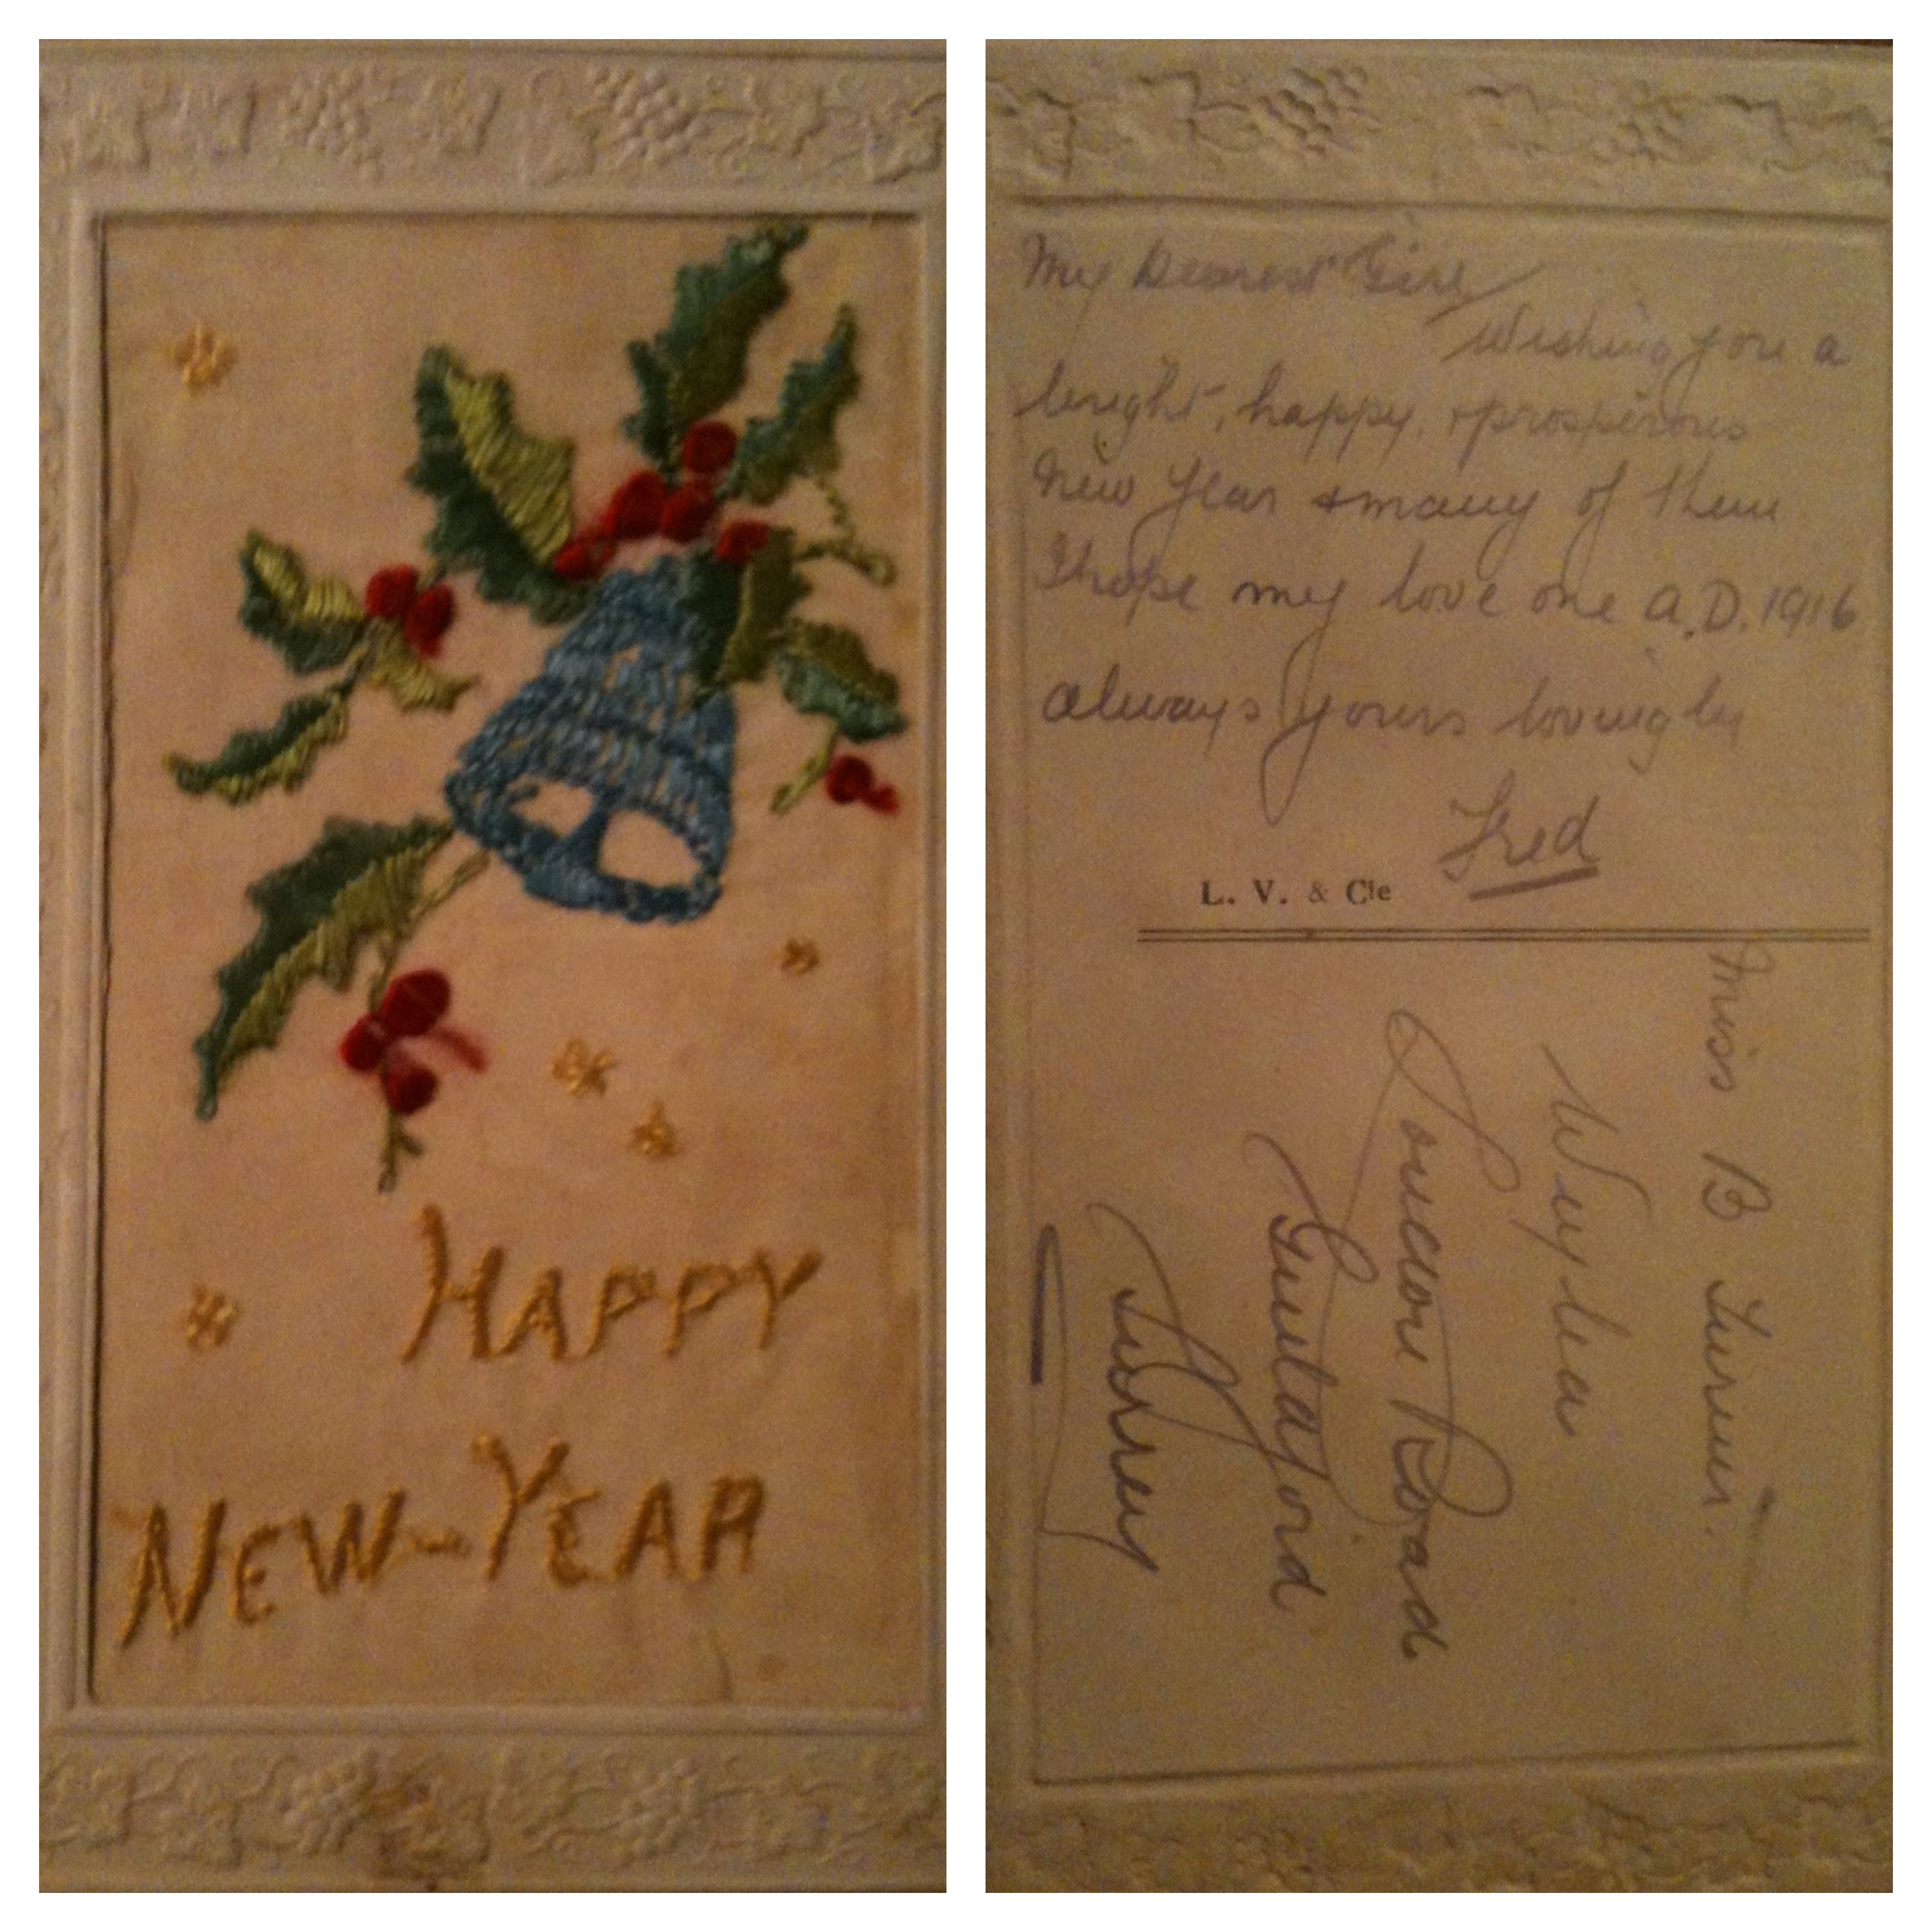 HAPPY
NEW-YEAR
My Dearest Girl
Wishing you a
bright, happy, + prosperous
New Year + many of them
I hope my love one A.D. 1916
always yours lovingly
Fred
L. V. & Cie
Miss B
Road
Guildford
Surrey